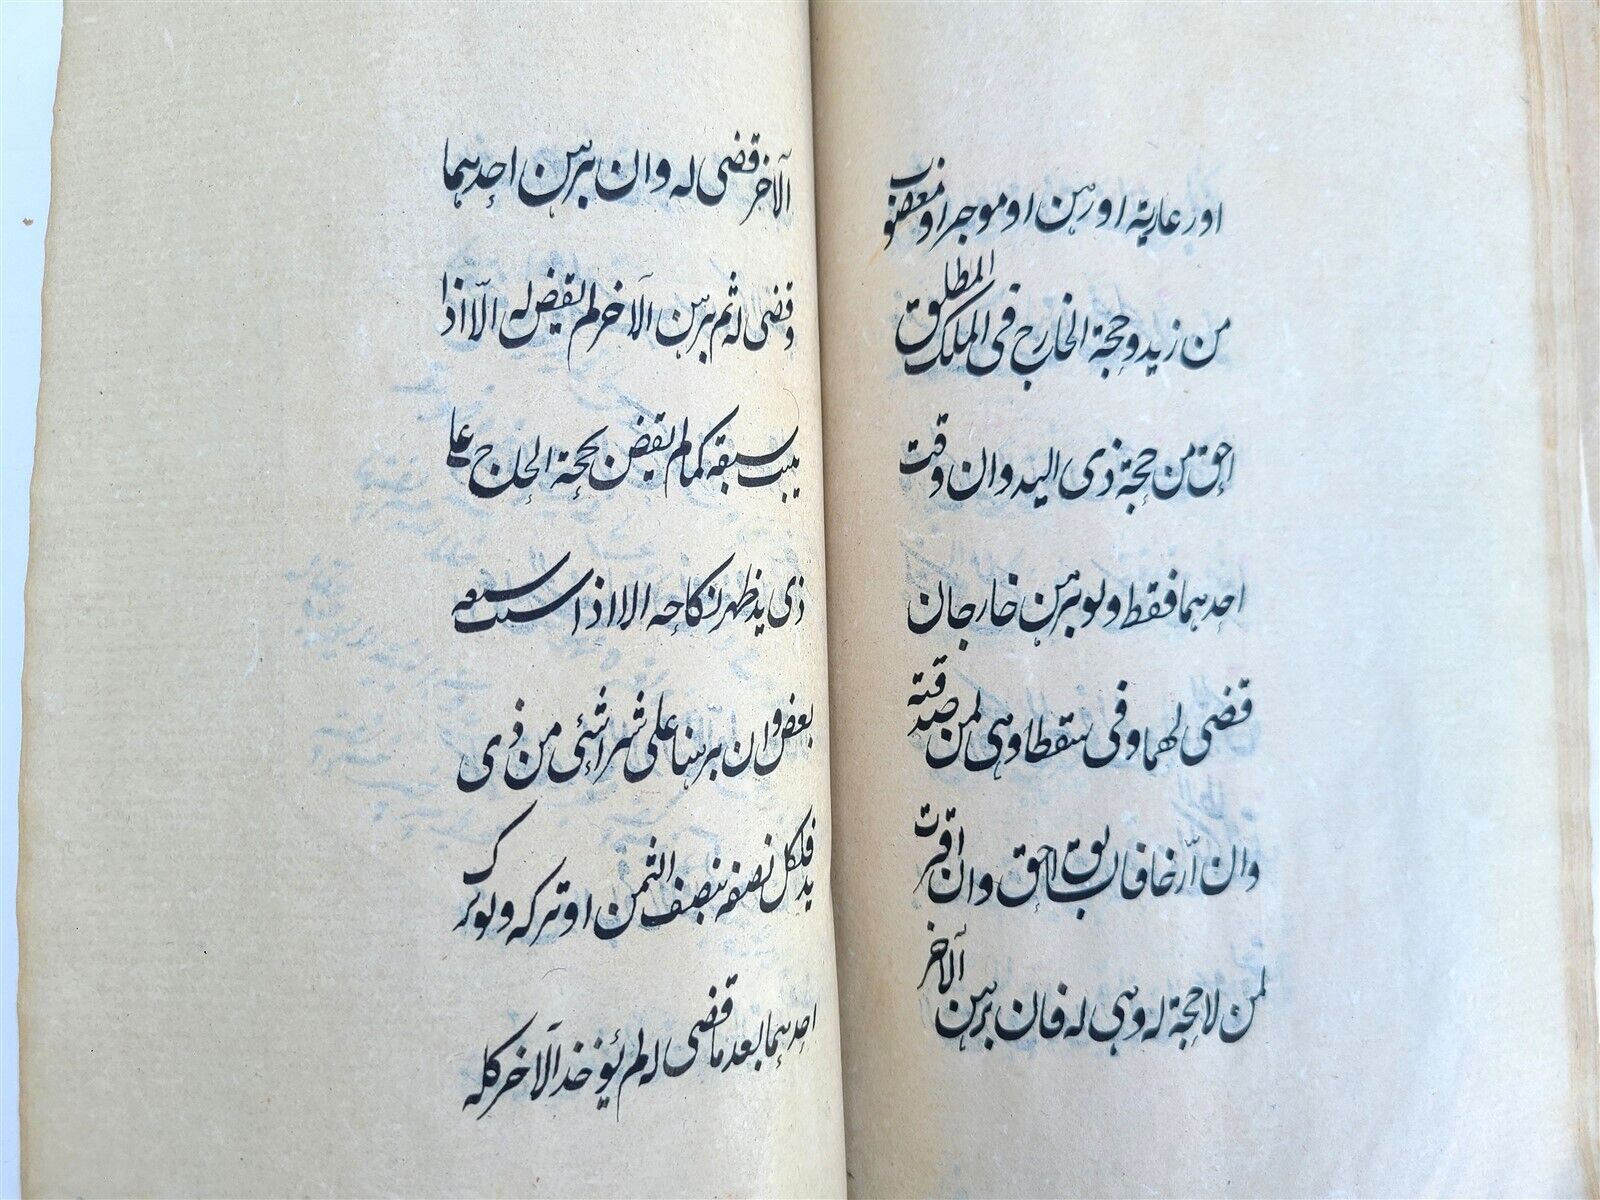 او رعارية او رهن او موجر او مغصوب
من زيد وحجة الخارج فى الملك المطلق
احق من حجة ذى اليد وان وقت
احدهما فقط ولو برهن خارجان
قضى لهما وفى سقطا وهى لمن صدقته
وان ارّخا فالسابق احق وان اقرت
لمن لا حجة له وهى له فان برهن الآخر
الآخر قضى له وان برهن احدهما
وقضى له ثم برهن الآخر لم يقض له الّا اذا
يثبت سبقه كما لم يقض بحجة الخارج على
ذى يد ظهر نكاحه الا اذا اسبت سبقه
بعض وان برهنا على شرا شئى من ذى
يد فلكل نصفه بنصف الثمن او تركه ولو ترك
احدهما بعد ما قضى له لم يؤخذ الآخر كله